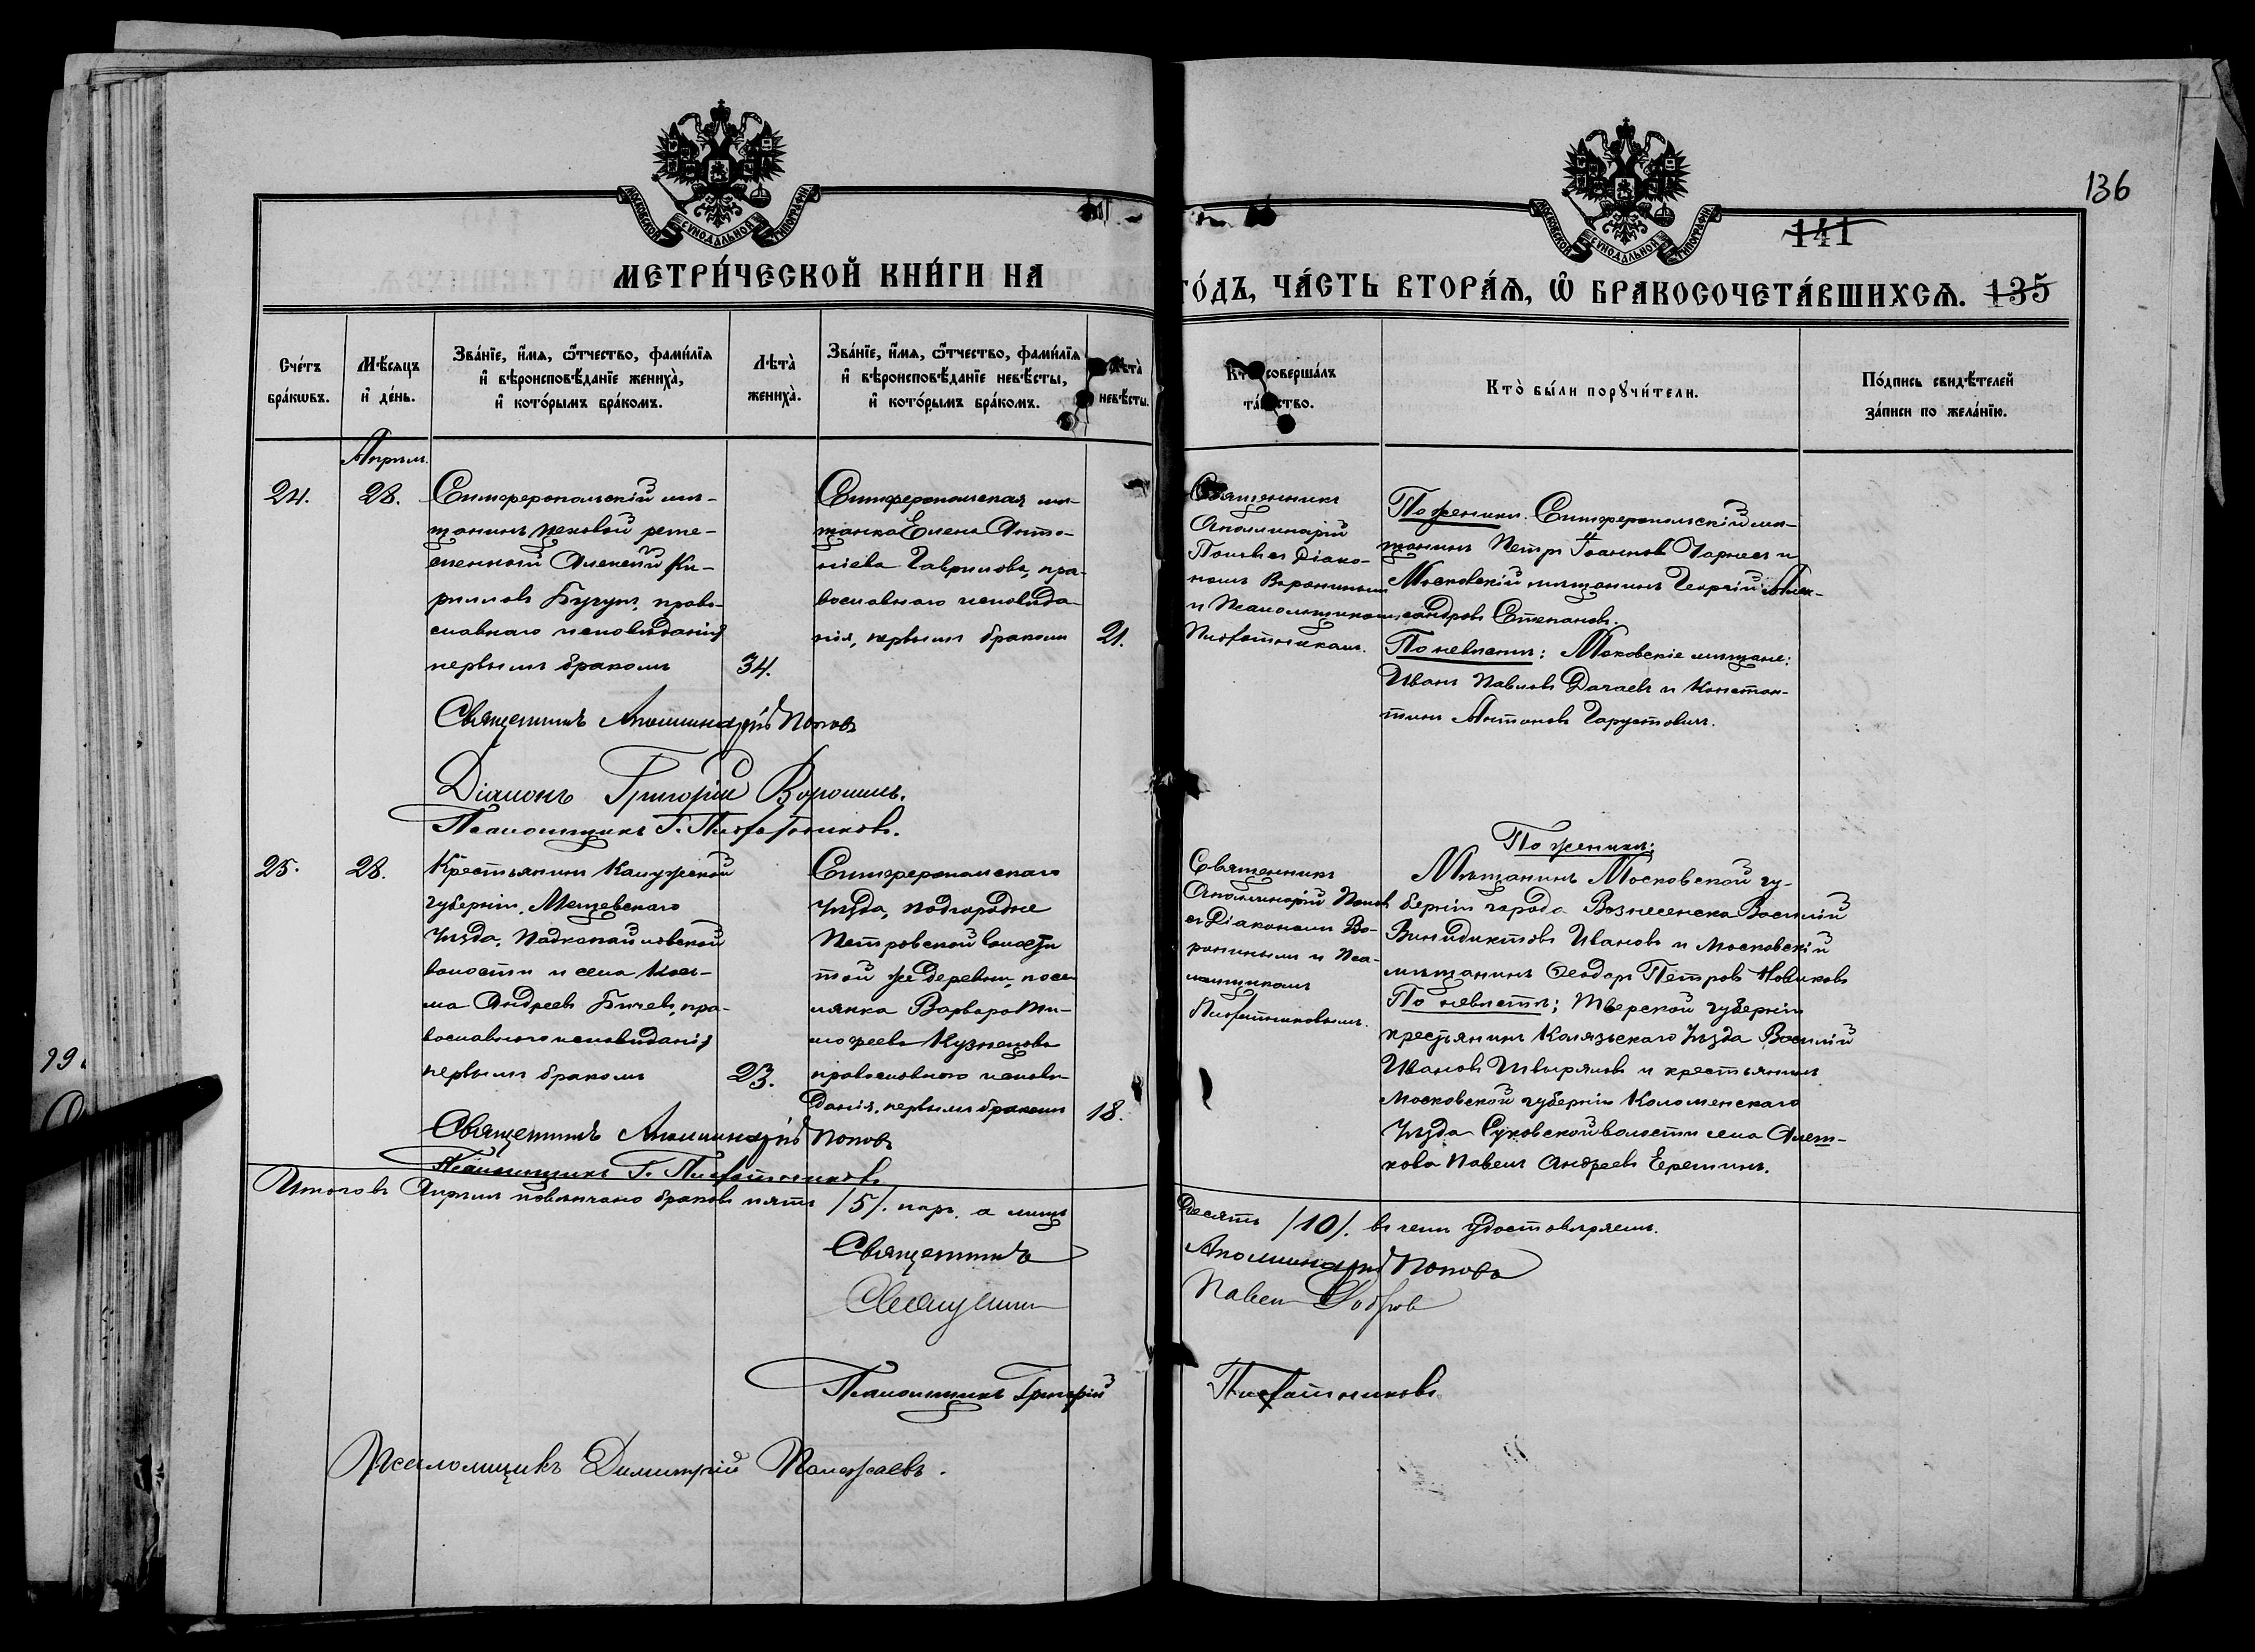 136
141
МОСКОВСКОЙ СУНОДАЛЬНОЙ ТИПОГРАФІИ
МОСКОВСКОЙ СУНОДАЛЬНОЙ ТИПОГРАФІИ
МЕТРИ́ЧЕСКОЙ КНИ́ГИ НА
ГО́ДЪ, ЧА́СТЬ ВТОРА́Ѧ, Ѽ БРАКОСОЧЕТА́ВШИХСѦ. 135
Сче́тъ бра́кѡвъ.
Мѣ́сяцъ и҆ де́нь.
Зва́нїе, и҆́мѧ, ѻ҆́тчество, фами́лїѧ
и҆ вѣроисповѣ́данїе жениха̀,
и҆ кото́рымъ бра́комъ.
Лѣта̀ жениха̀.
Зва́нїе, и҆́мѧ, ѻ҆́тчество, фами́лїѧ
и҆ вѣроисповѣ́данїе невѣ́сты,
и҆ кото́рымъ бра́комъ.
Лѣта̀ невѣ́сты.
Кто̀ соверша́лъ
та́инство.
Кто̀ бы́ли порꙋчи́тели.
По́дпись свидѣ́телей
за́писи по жела́нїю.
Апрѣль.
24.
28.
Симферопольскій мѣ-
щанинъ цеховой реме-
сленный Алексѣй Ки-
рилловъ Бугун, право-
славнаго исповѣданія
первымъ бракомъ
34.
Симферопольская мѣ-
щанка Елена Анто-
ніева Гаврилова, пра-
вославнаго исповѣда-
нія, первымъ бракомъ
21.
Священникъ
Аполлинарій
Поповъ съ Діако-
номъ Воронинымъ
и Псаломщикомъ
По женихѣ. Симферопольскій мѣ-
щанинъ Петръ Іоанновъ Чарнесъ и
Московскій мѣщанинъ Георгій Алек-
сандровъ Степановъ.
По невѣстѣ: Московскіе мѣщане:
Иванъ Павловъ Дачаевъ и Констан-
тинъ Антоновъ Гарустовичъ.
Священникъ Аполлинарій Поповъ
Діаконъ Григорій Воронинъ.
Псаломщикъ Г.
25.
28.
Крестьянинъ Калужской
губерніи, Мещевскаго
уѣзда,
волости и села Кось-
ма Андреевъ Бычевъ, пра-
вославнаго исповѣданія
первымъ бракомъ
23.
Симферопольскаго
уѣзда, подгородне
Петровской волости
той же деревни, посе-
лянка Варвара Ти-
мофеева Кузнецова
православнаго исповѣ-
данія, первымъ бракомъ
18.
Священникъ
Аполлинарій Поповъ
съ Діакономъ Во-
ронинымъ и Пса-
ломщикомъ
По женихѣ:
Мѣщанинъ Московской гу-
берніи города Вознесенска Василій
Винидиктовъ Ивановъ и Московскій
мѣщанинъ Ѳеодоръ Петровъ Новиковъ
По невѣстѣ; Тверской губерніи
крестьянинъ Колязьскаго Уѣзда Василій
Ивановъ Швыряловъ и крестьянинъ
Московской губерніи Коломенскаго
Уѣзда Суковской волости села Алеш-
кова Павелъ Андреевъ Еремінъ.
Священникъ Аполлинарій Поповъ
Псаломщикъ Г.
Итого въ Апрѣлѣ повѣнчано браковъ пять /5/. паръ, а лицъ
десять /10/. въ чемъ удостовѣряемъ.
Священникъ Аполлинарій Поповъ
Священникъ Павелъ Добровъ
Псаломщикъ Григорій
Псаломщикъ Димитрій